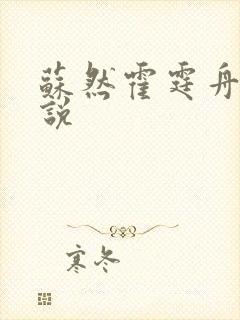 蘇然霍霆舟
說
寒冬